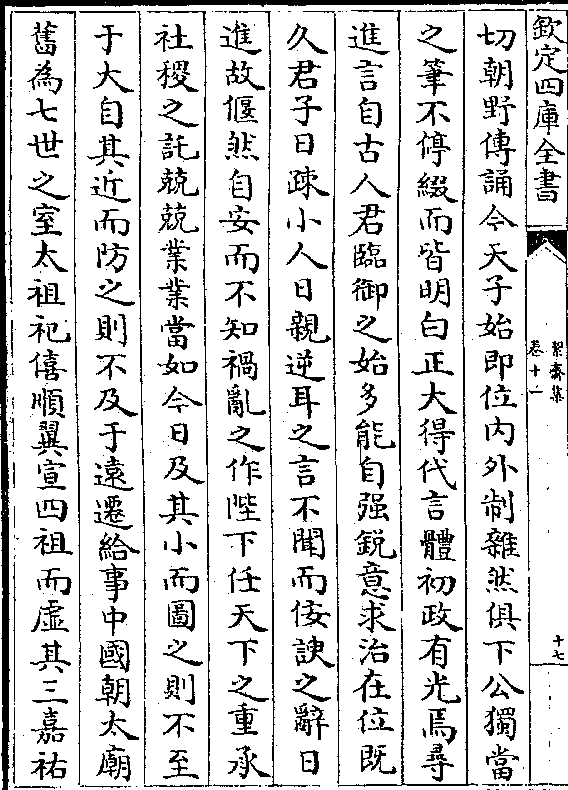 欽定四庫全書
絜齋集
卷十一
十七
切朝野傳誦今天子始即位内外制雜然俱下公獨當
之筆不停綴而皆明白正大得代言體初政有光焉尋
進言自古人君臨御之始多能自强銳意求治在位既
久君子日疎小人日親逆耳之言不聞而佞諛之辭日
進故偃然自安而不知禍亂之作陛下任天下之重承
社稷之託兢兢業業當如今日及其小而圖之則不至
于大自其近而防之則不及于遠遷給事中國朝太廟
舊為七世之室太祖祀僖順翼宣四祖而虛其三嘉祐